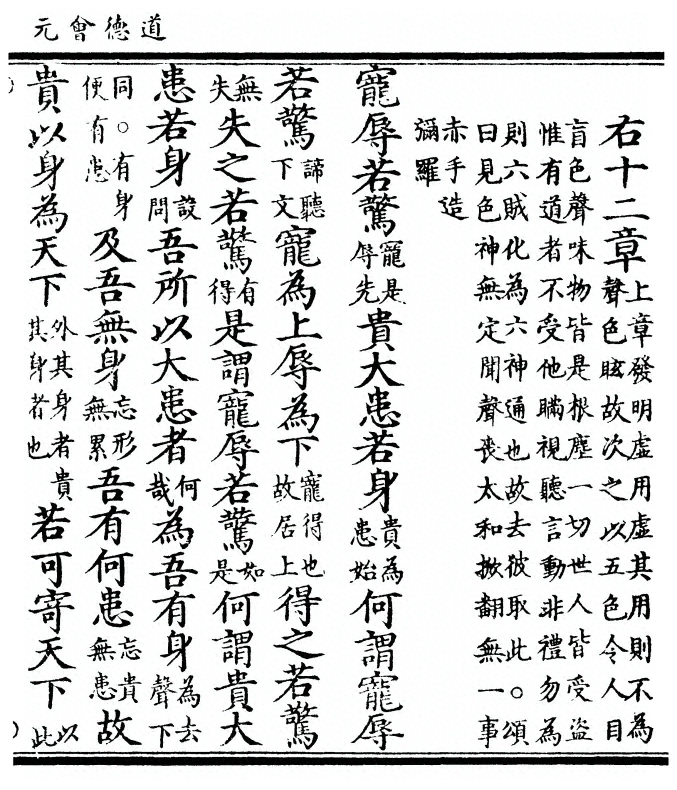 道德會元
右十二章上章發明虛用虛其用則不為聲色眩故次之以五色令人目
盲色聲味物皆是根塵一切世人皆受盜
惟有道者不受他瞞視聽言動非禮勿為
則六賊化為六神通也故去彼取此○頌
曰見色神無定聞聲喪太和掀翻無一事
赤手造
彌羅
寵辱若驚寵是辱先貴大患若身貴為患始何謂寵辱
若驚諦聽下文寵為上辱為下寵得也故居上得之若驚
無失失之若驚有得是謂寵辱若驚如是何謂貴大
患若身設問吾所以大患者何哉為吾有身為去聲下
同○有身便有患及吾無身忘形無累吾有何患忘貴無患故
貴以身為天下外其身者貴其身者也若可寄天下以此